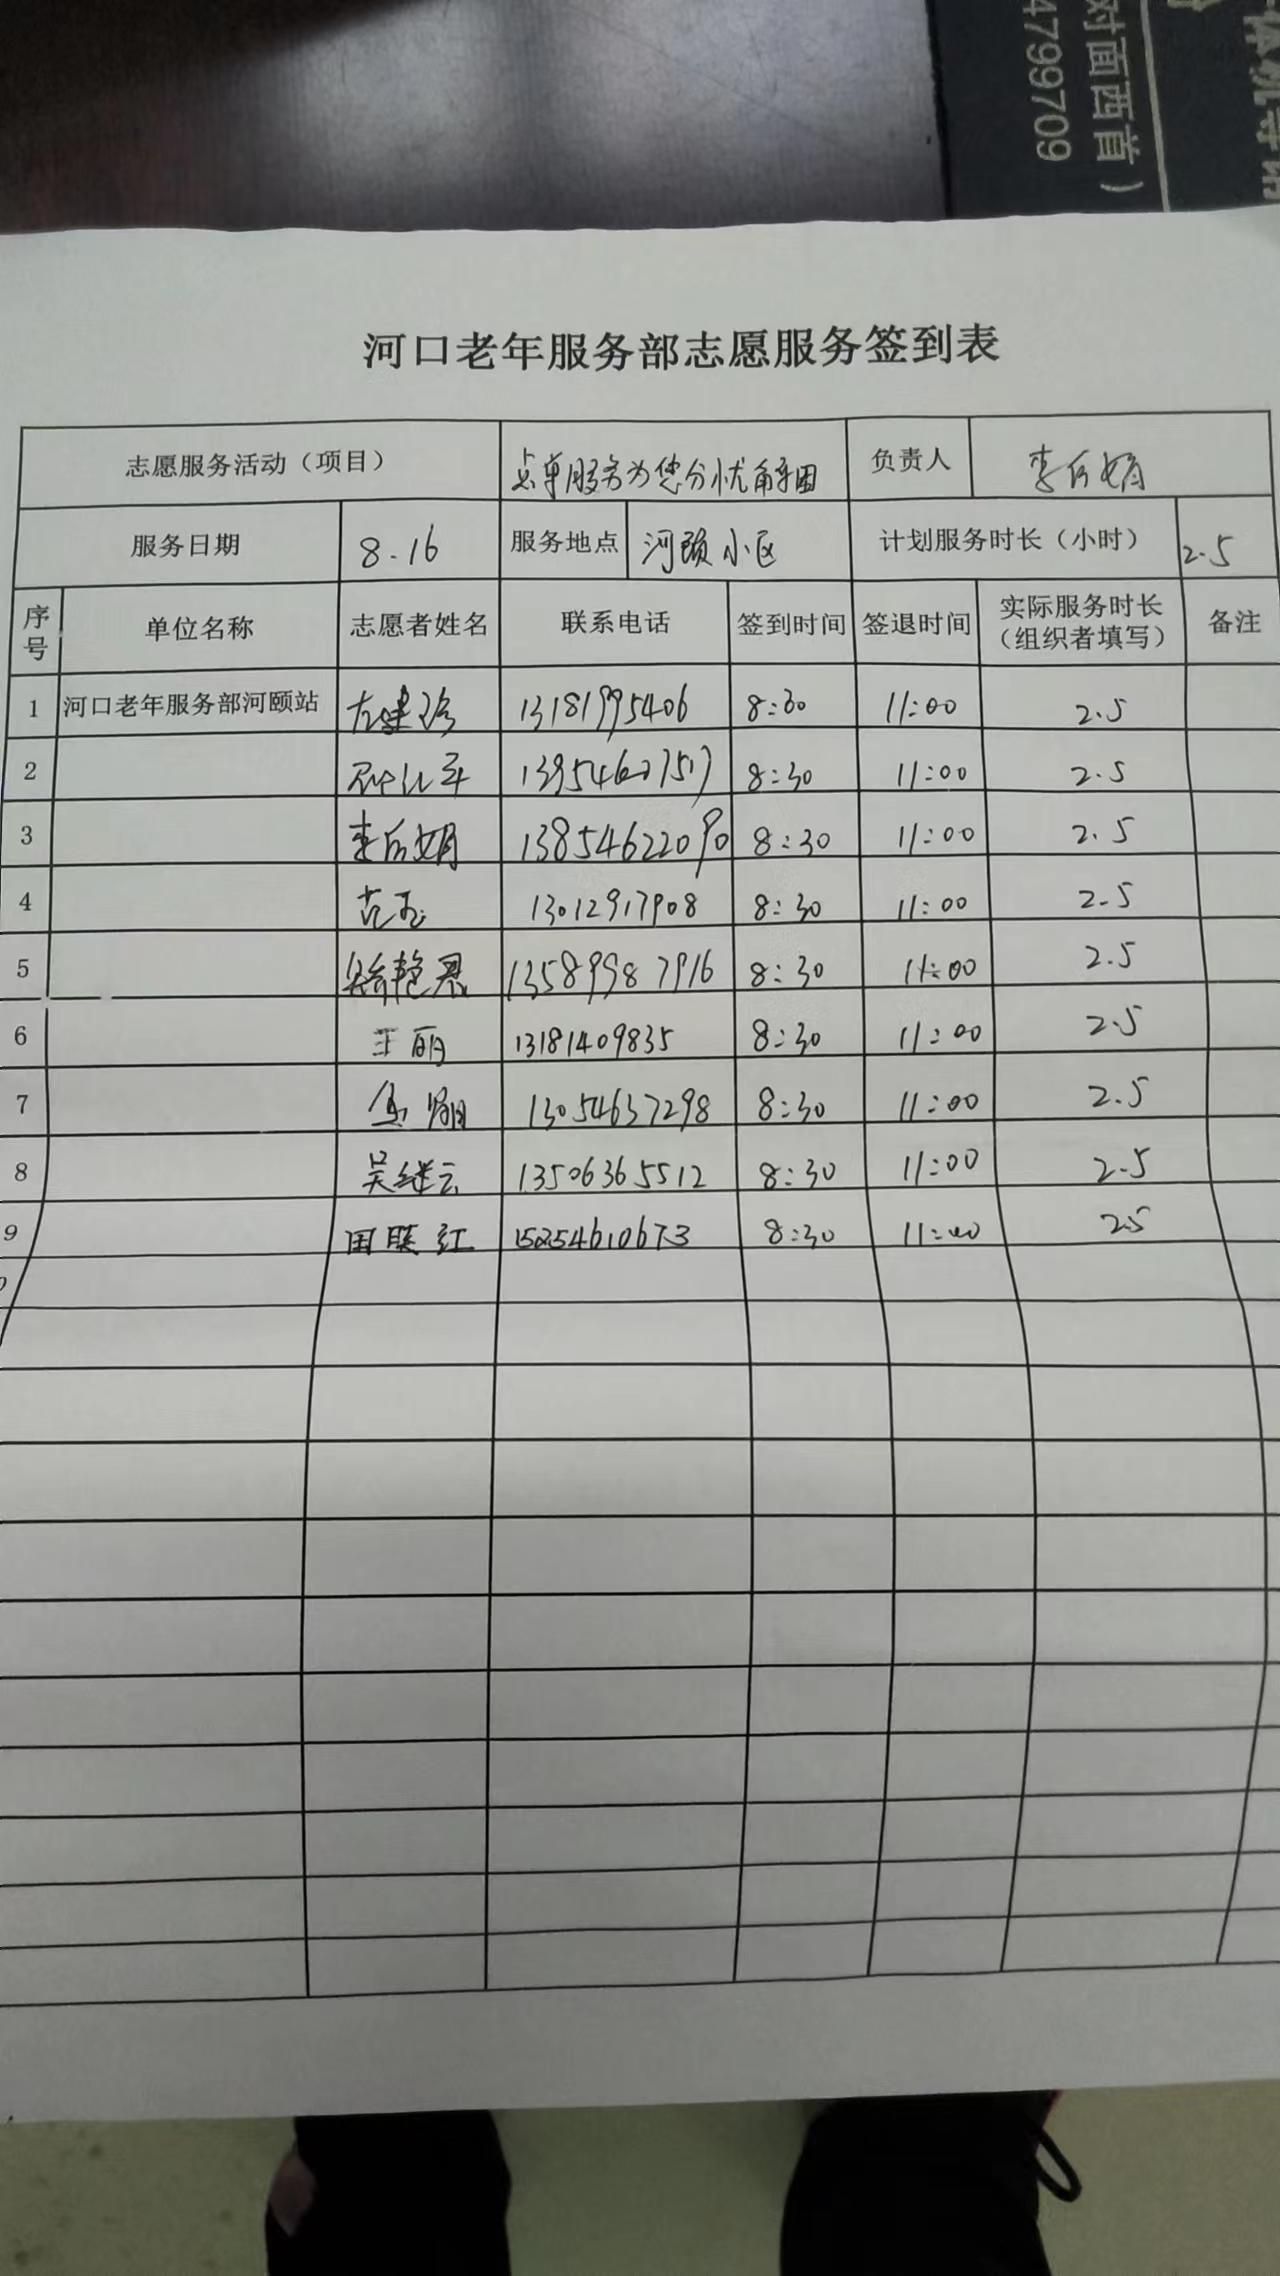 对面西首）
4799709
河口老年服务部志愿服务签到表
志愿服务活动（项目） 点单服务为您分忧解困 负责人 李后娟
服务日期 8.16 服务地点 河颐小区 计划服务时长（小时） 2.5
序号 单位名称 志愿者姓名 联系电话 签到时间 签退时间 实际服务时长（组织者填写） 备注
1 河口老年服务部河颐站 13181995406 8:30 11:00 2.5
2 8:30 11:00 2.5
3 李后娟 13854622090 8:30 11:00 2.5
4 范玉 13012917908 8:30 11:00 2.5
5 13589987916 8:30 11:00 2.5
6 王丽 13181409835 8:30 11:00 2.5
7 13054637298 8:30 11:00 2.5
8 吴继云 13506365512 8:30 11:00 2.5
9 15254610673 8:30 11:00 2.5